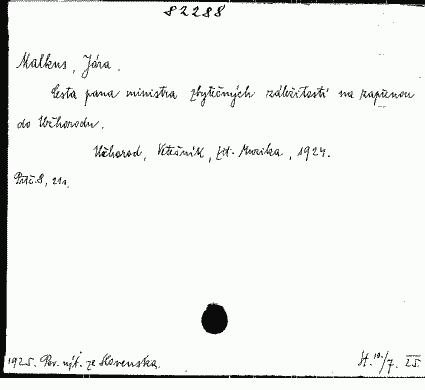 82288
Malkus, Jára.
Cesta pana ministra zbytečných záležitostí na zapřenou
do Užhorodu.
Užhorod, Věšník, fst. Muzika, 1924.
8, 21s.
1925. Pov. výt. ze Slovenska.
St. 10./7. 25.